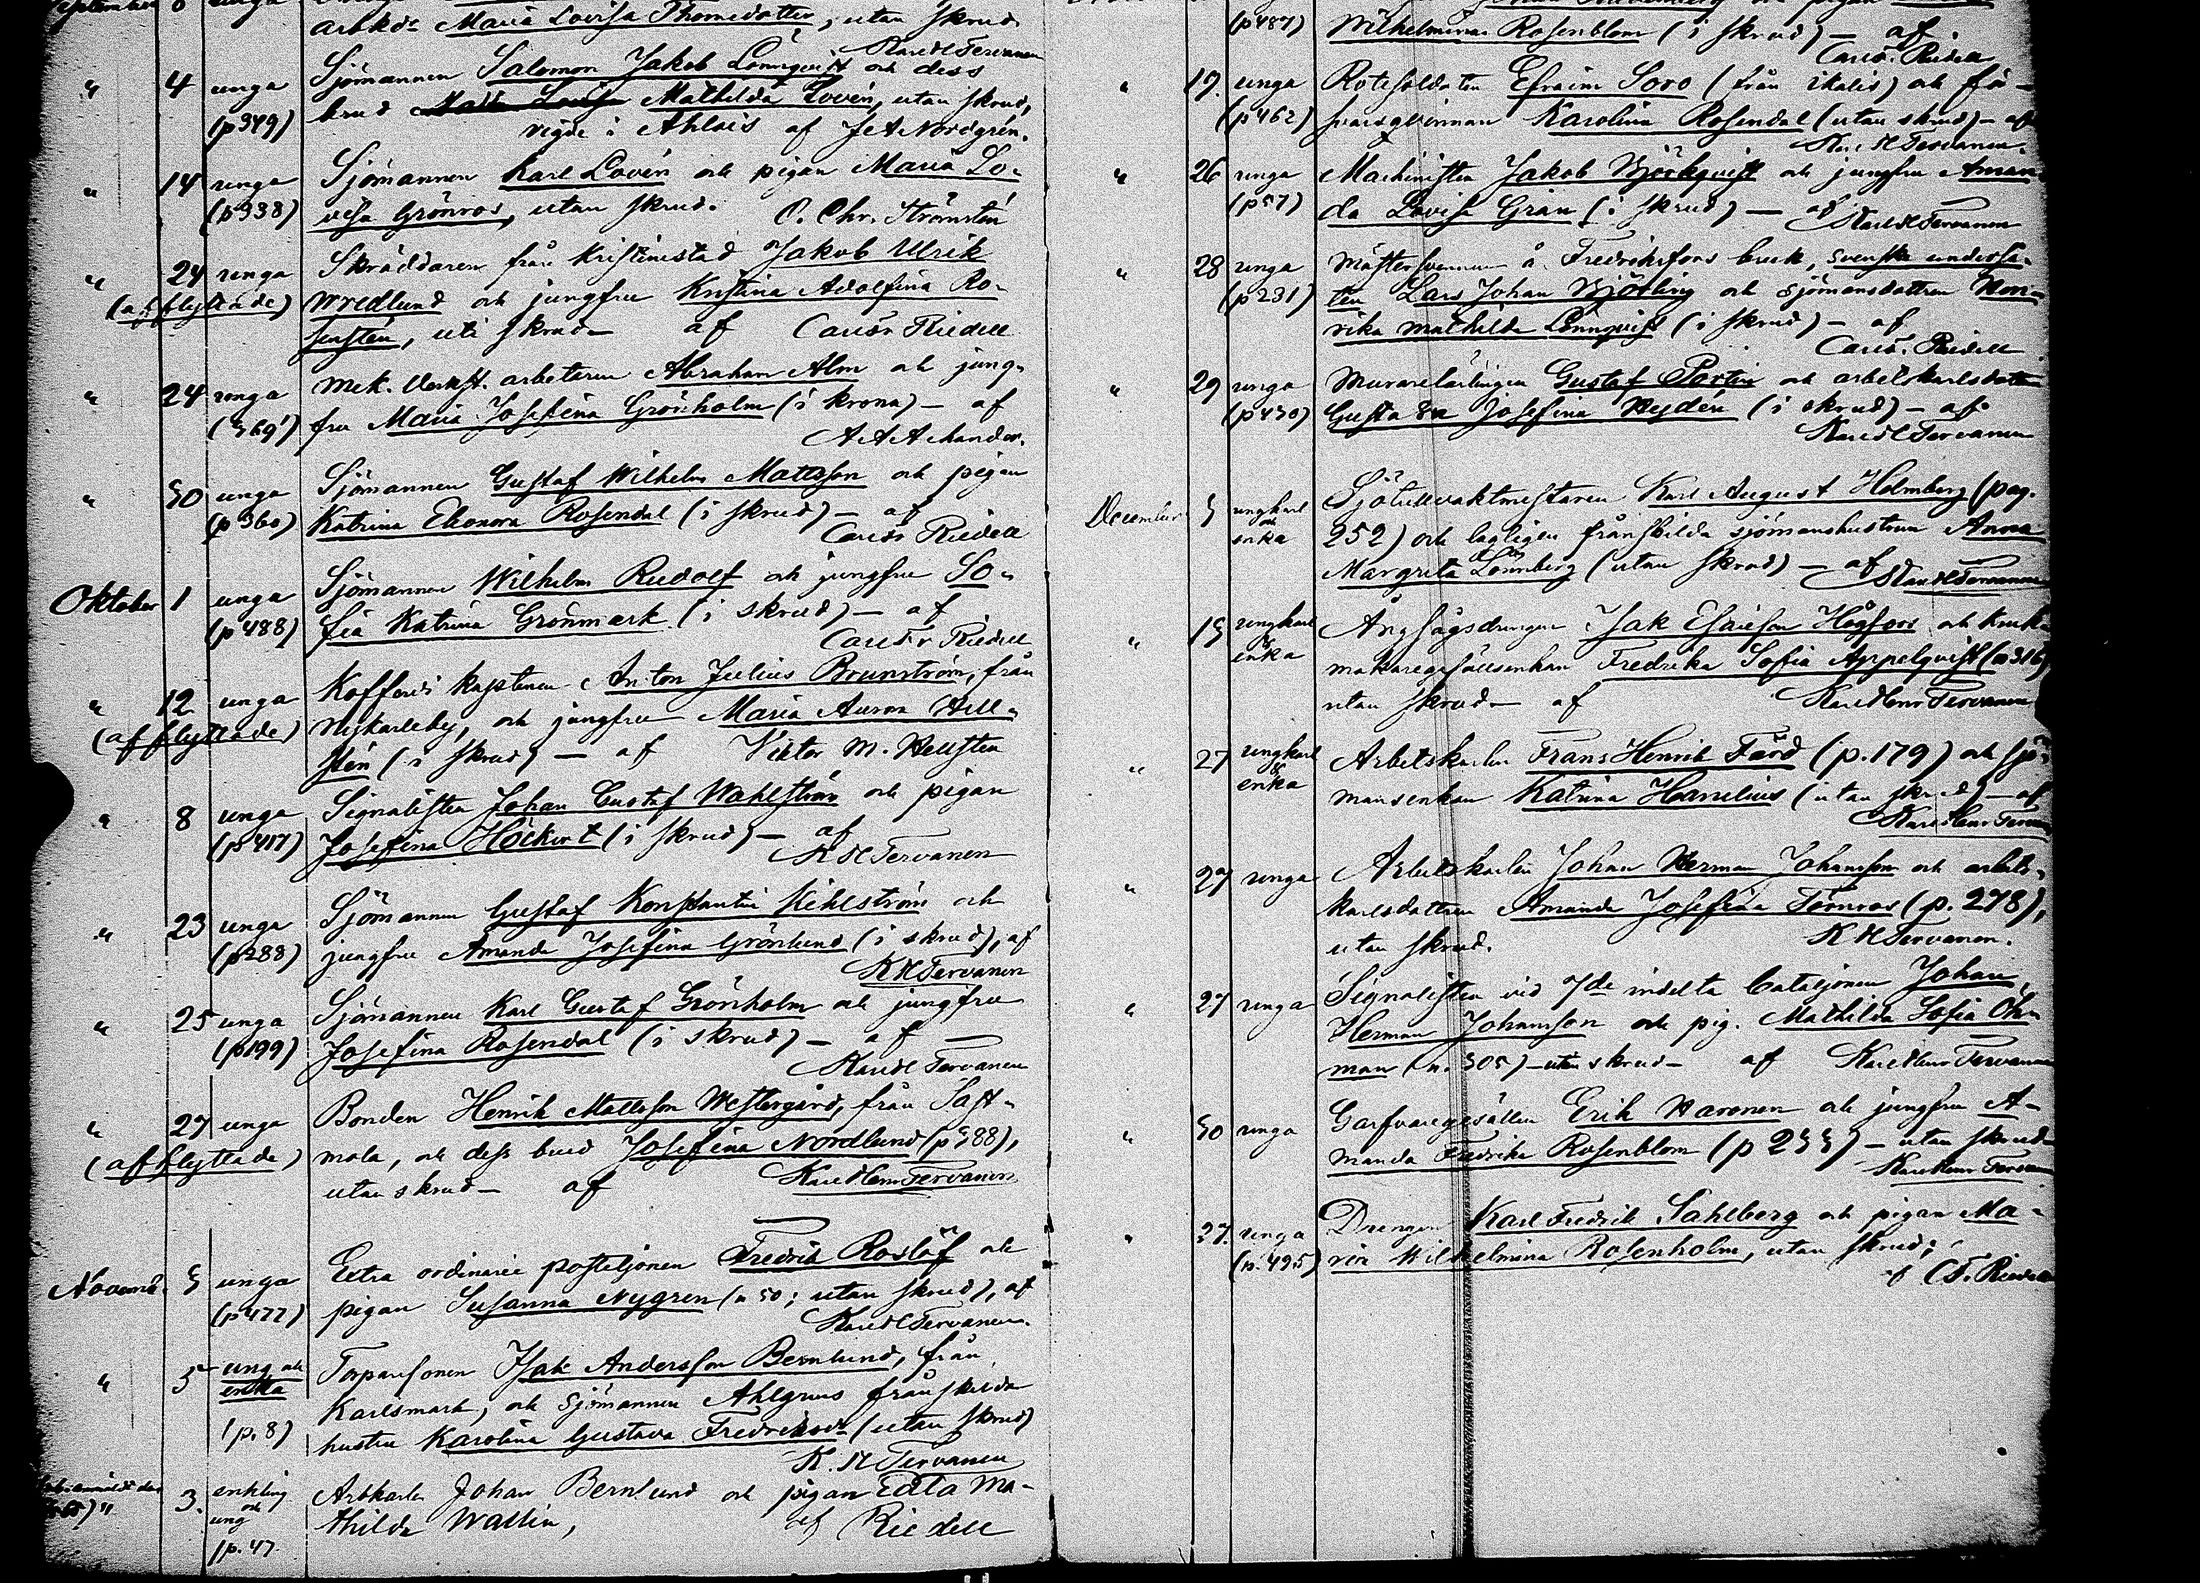 September
arbkdr Maria Lovisa Thomedotter, utan skrud
Karl H Tervanen
" 4 unga Sjömannen Salomon Jakob Lönnqvist och dess
(p 349) brud Mathilda Lovén, utan skrud,
vigde i Ahlais af J A Nordgrén.
" 14 unga Sjömannen Karl Lovén och pigan Maria Lo-
(p 338) visa Grönros, utan skrud. O. Chr. Strömstén
" 24 unga Skräddaren från Kristinistad Jakob Ulrik
(afflyttade) Wredlund och jungfru Kristina Adolfina Ro-
sensten, uti skrud af Caisör Riedell
" 24 unga Mek. Verkst. arbetaren Abraham Alm och jung-
(369) fru Maria Josefina Grönholm (i krona) — af
" 30 unga Sjömannen Gustaf Wilhelm Mattsson och pigan
(p 360) Katrina Eleonora Rosendal (i skrud) — af
Riedell
Oktober 1 unga Sjömannen Wilhelm Rudolf och jungfru So-
(p 488) fia Katrina Grönmark (i skrud) — af
Riedell
" 12 unga Kofferdi kaptenen Anton Julius Brunström, från
(afflyttade) Nykarleby, och jungfru Maria Aurora Hell-
stén (i skrud) — af Viktor M. Hellsten
" 8 unga Signalisten Johan Gustaf Wahlström och pigan
(p 417) Josefina Höckert (i skrud) — af
K H Tervanen
" 23 unga Sjömannen Gustaf Konstantin Kihlström och
(p 288) jungfru Amanda Josefina Grönlund (i skrud), af
K H Tervanen
" 25 unga Sjömannen Karl Gustaf Grönholm och jungfru
(p 199) Josefina Rosendal (i skrud) — af
Karl H Tervanen
" 27 unga Bonden Henrik Mattsson Westergård, från Sast-
(afflyttade) mola, och dess brud Josefina Nordlund (p 388),
utan skrud — af Karl Henr Tervanen
Novemb. 3 unga Extra ordinarie postiljonen Fredrik Roslöf och
(p 477) pigan Susanna Nygren (n 50; utan skrud), af
Karl H Tervanen.
" 5 ung och Torparsonen Isak Andersson Bernlund, från
enka Karlsmark, och Sjömannen Ahlgrens frånskilda
(p. 8) hustru Karolina Gustava Fredriksdr (utan skrud)
K. H Tervanen
3. enkling Arbkarlen Johan Bernlund och pigan Edla Ma-
och ung thilda Wallin, af Riedell
p. 47
(p 487) Wilhelmina Rosenblom (i skrud) — af
Riedell
" 17. unga Rotesoldaten Efraim Soro (från Ikalis) och för-
(p 462) svarsqvinnan Karolina Rosendal (utan skrud) — af
Karl H Tervanen.
" 26 unga Machinisten Jakob Björkqvist och jungfru Aman-
(p 57) da Lovisa Gran (i skrud) — af
Karl H Tervanen
" 28 unga Mästersvennen å Fredriksfors bruk, svenske underså-
(p 231) ten Lars Johan Björling och Sjömansdottren Hen-
rika Mathilda Lönnqvist (i skrud) — af
Riedell
" 29 unga Murarelärlingen Gustaf Portin och arbetskarlsdottren
(p 430) Gustava Josefina Heydén (i skrud) — af
Karl H Tervanen
December 3 ungkarl Sjötullvaktmästaren Karl August Holmberg (pag.
och enka 252) och lagligen frånskilda sjömanshustrun Anna
Margreta Lönnberg (utan skrud) — af Karl H Tervanen
" 13 ungkarl Ångsågsdrengen Isak Esaieson Högfors och kruk-
& enka makaregesällsenkan Fredrika Sofia Appelqvist (n 316)
utan skrud — af Karl Henr Tervanen
" 27 ungkarl Arbetskarlen Frans Henrik Färd (p. 179) och sjö-
& enka mansenkan Katrina Hanelius (utan skrud) — af
Karl Henr Tervanen
" 27 unga Arbetskarlen Johan Herman Johansson och arbets-
karlsdottren Amanda Josefina Törnros (p. 278),
utan skrud. K H Tervanen.
" 27 unga Signalisten vid 7de indelta bataljonen Johan
Herman Johansson och pig. Mathilda Sofia Öh-
man (n. 305) — utan skrud — af Karl Henr Tervanen
" 30 unga Garfvaregesällen Erik Haronen och jungfru A-
manda Fredrika Rosenblom (p 233) — utan skrud
Karl Henr Tervanen
" 27. unga Drengen Karl Fredrik Sahlberg och pigan Ma-
(n. 495) ria Wilhelmina Rosenholm, utan skrud;
af C F. Riedell